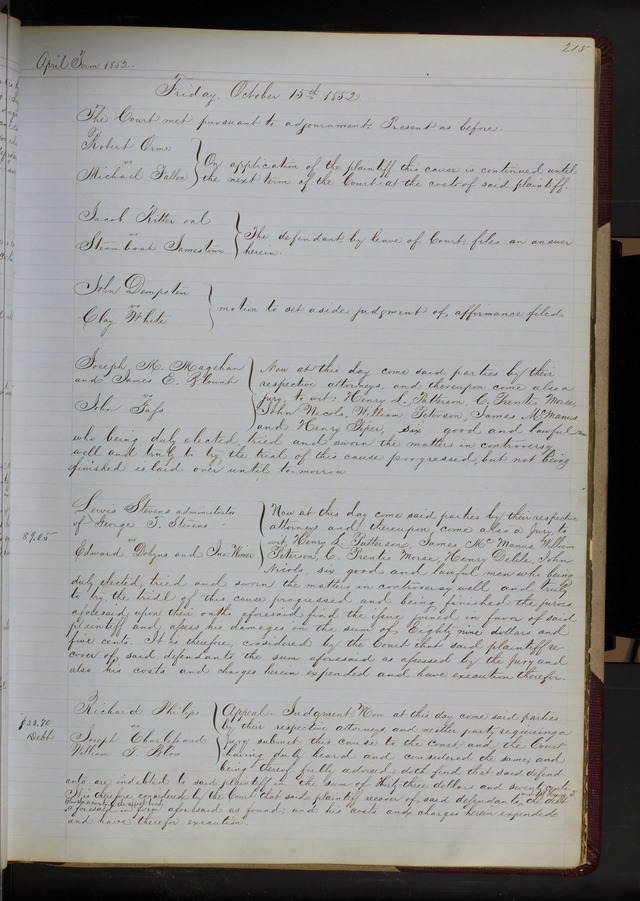 215
April Term 1852.
Friday, October 15th 1852
The Court met pursuant to adjournment. Present as before.
Robert Orme
vs
Michael Fallon
On application of the plaintiff this cause is continued until
the next term of the Court at the costs of said plaintiff.
Jacob Ritter et al
vs
Steam boat Jamestown
The defendant, by leave of Court, files an answer
herein.
John Dempsten
vs
Clay White
motion to set aside judgment of affirmance filed
Joseph M. Magehan
and James E. Blount
vs
John
Now at this day come said parties by their
respective attorneys, and thereupon come also a
jury to wit; Henry L. Patterson, C. Prentis Morse,
John Nicols, William Peterson, James McManus
and Henry Piper, six good and lawful men
who being duly elected, tried and sworn the matters in controversy
well and truly to try the trial of this cause progressed, but not being
finished is laid over until to-morrow
89.05
Lewis Stevens administrator
of George T. Stevens
vs
Edward Dobyns and Jno: Wimer
Now at this day come said parties by their respective
attorneys and, thereupon, come also a Jury to
wit Henry L. Patterson, James McManus, William
Peterson, C. Prentis Morse, Henry John
Nicols, six good and lawful men who being
duly elected, tried and sworn the matters in controversy well and truly
to try, the trial of this cause progressed and being finished the jurors
aforesaid upon their oaths aforesaid find the issue joined in favor of said
plaintiff and assess his damages in the sum of Eighty nine dollars and
five cents. It is therefore, considered by the Court that said plaintiff re
cover of said defendants the sum aforesaid as assessed by the Jury and
also his costs and charges herein expended and have execution therefor.
$33.70
Debt
Richard Philps
vs
Joseph Charless and
William T. Blow
Appeal- Judgment. Now at this day come said parties
by their respective attorneys and neither party requiring a
jury submit this cause to the court, and the Court
having duly heard and considered the same, and
being thereof fully advised doth find that said defend
ants are indebted to said plaintiff in the sum of thirty three dollars and seventy cents
It is therefore considered by the Court that said plaintiff recover of said defendants, the debt
aforesaid in form aforesaid as found; and his costs and charges herein expended
and have therefor execution.